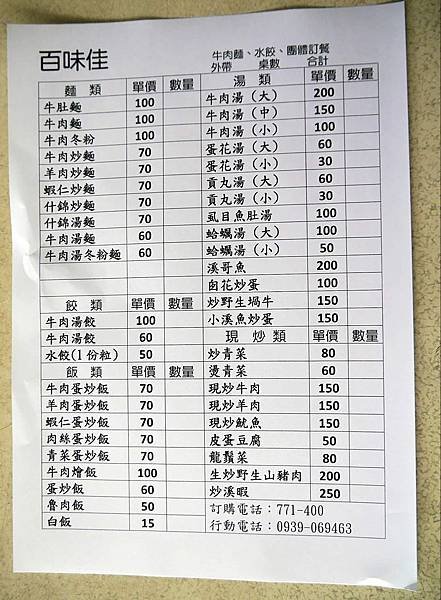 百味佳
牛肉麵、水餃、團體訂餐
外帶　桌數　合計
麵　類　單價　數量
牛肚麵　100
牛肉麵　100
牛肉冬粉　100
牛肉炒麵　70
羊肉炒麵　70
蝦仁炒麵　70
什錦炒麵　70
什錦湯麵　70
牛肉湯麵　60
牛肉湯冬粉麵　60
餃　類　單價　數量
牛肉湯餃　100
牛肉湯餃　60
水餃(1份粒)　50
飯　類　單價　數量
牛肉蛋炒飯　70
羊肉蛋炒飯　70
蝦仁蛋炒飯　70
肉絲蛋炒飯　70
青菜蛋炒飯　70
牛肉燴飯　100
蛋炒飯　60
魯肉飯　50
白飯　15
湯　類　單價　數量
牛肉湯（大）　200
牛肉湯（中）　150
牛肉湯（小）　100
蛋花湯（大）　60
蛋花湯（小）　30
貢丸湯（大）　60
貢丸湯（小）　30
虱目魚肚湯　100
蛤蠣湯（大）　100
蛤蠣湯（小）　50
溪哥魚　200
卤花炒蛋　100
炒野生蝸牛　150
小溪魚炒蛋　150
現　炒　類　單價　數量
炒青菜　80
燙青菜　60
現炒牛肉　150
現炒羊肉　150
現炒魷魚　150
皮蛋豆腐　50
龍鬚菜　80
生炒野生山豬肉　200
炒溪暇　250
訂購電話：771-400
行動電話：0939-069463